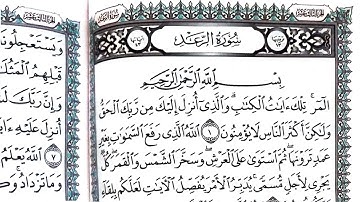 سُورَةُ الرَّعْدِ
بِسْمِ اللَّهِ الرَّحْمَٰنِ الرَّحِيمِ
الٓمٓر ۚ تِلْكَ ءَايَٰتُ الْكِتَٰبِ ۗ وَالَّذِىٓ أُنزِلَ إِلَيْكَ مِن رَّبِّكَ الْحَقُّ
وَلَٰكِنَّ أَكْثَرَ النَّاسِ لَا يُؤْمِنُونَ ١ اللَّهُ الَّذِى رَفَعَ السَّمَٰوَٰتِ بِغَيْرِ
عَمَدٍ تَرَوْنَهَا ۖ ثُمَّ اسْتَوَىٰ عَلَى الْعَرْشِ ۖ وَسَخَّرَ الشَّمْسَ وَالْقَمَرَ ۖ كُلٌّ
يَجْرِى لِأَجَلٍ مُّسَمًّى ۚ يُدَبِّرُ الْأَمْرَ يُفَصِّلُ الْءَايَٰتِ لَعَلَّكُم بِلِقَآءِ
وَيَسْتَعْجِلُونَكَ
قَبْلِهِمُ الْمَثُلَٰتُ
وَإِنَّ رَبَّكَ
أُنزِلَ عَلَيْهِ ءَايَةٌ
٧ اللَّهُ يَعْلَمُ
وَمَا تَزْدَادُ ۖ وَكُلُّ